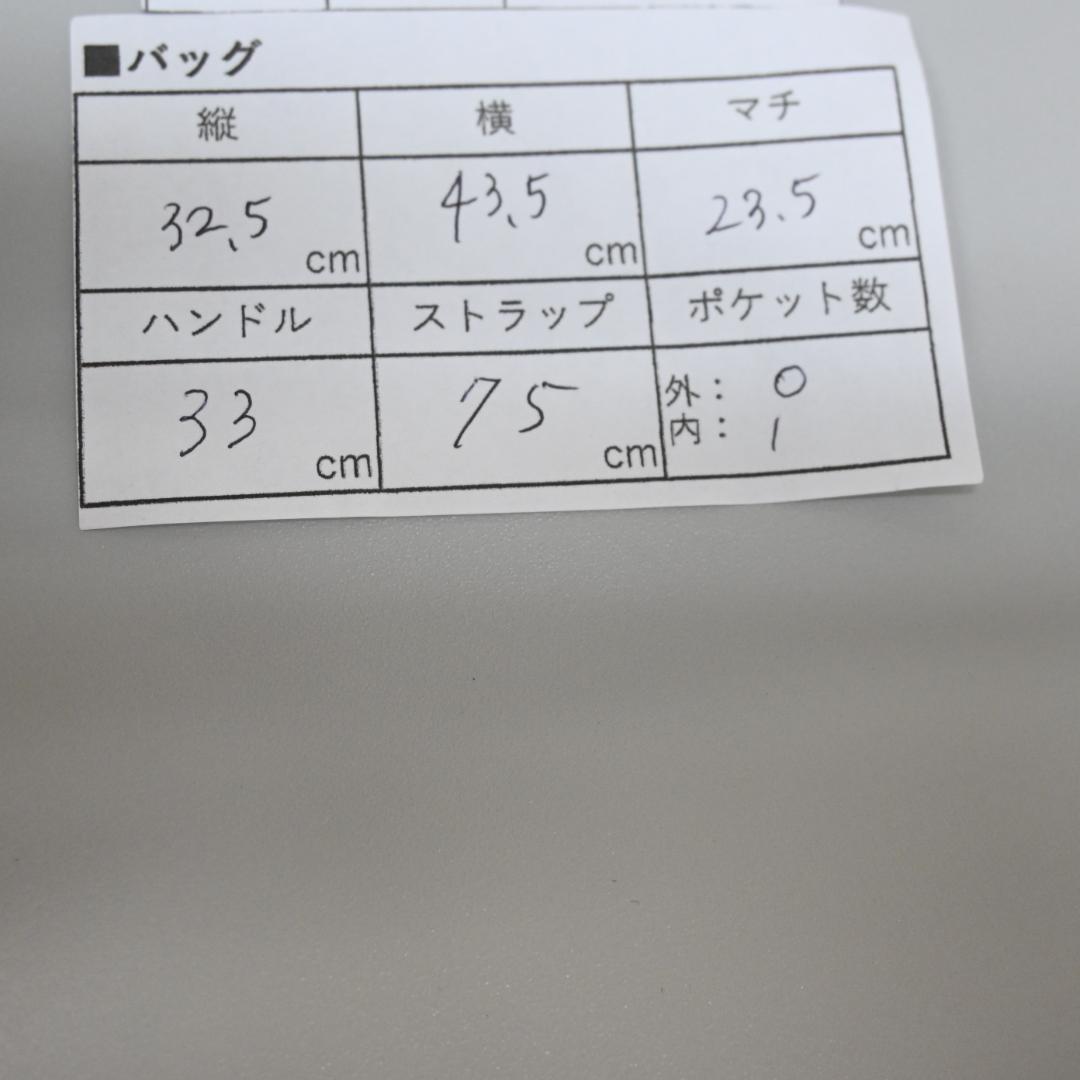 ■バッグ
縦 横 マチ
32.5 cm 43.5 cm 23.5 cm
ハンドル ストラップ ポケット数
33 cm 75 cm 外： 0
内： 1